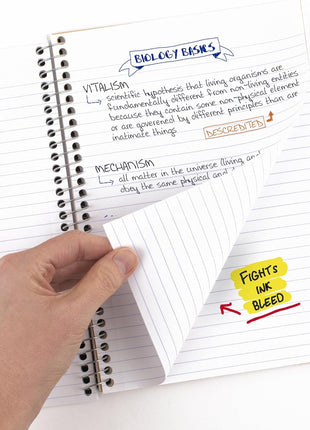 BIOLOGY BASICS
VITALISM
scientific hypothesis that living organisms are
fundamentally different from non-living entities
because they contain some non-physical element
or are governed by different principles than are
inatimate things.
DESCREDITED
MECHANISM
all matter in the universe (living, and
obey the same physical and
FIGHTS
INK
BLEED